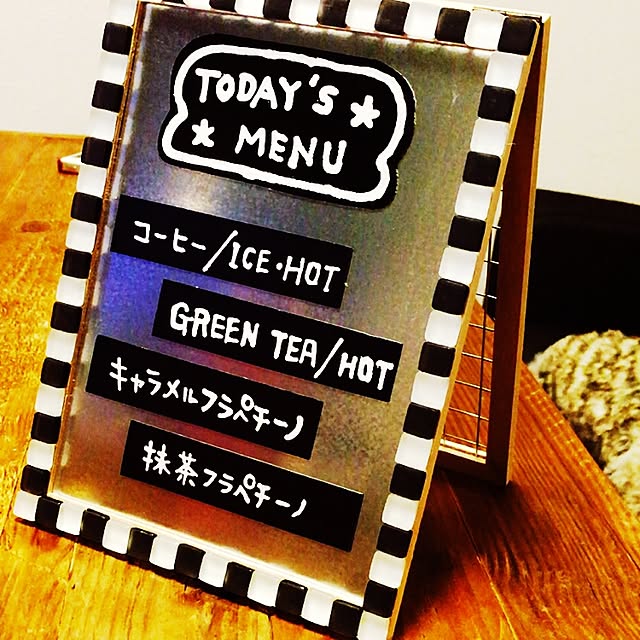 TODAY'S *
* MENU
コーヒー/ICE・HOT
GREEN TEA/HOT
キャラメルフラペチーノ
抹茶フラペチーノ